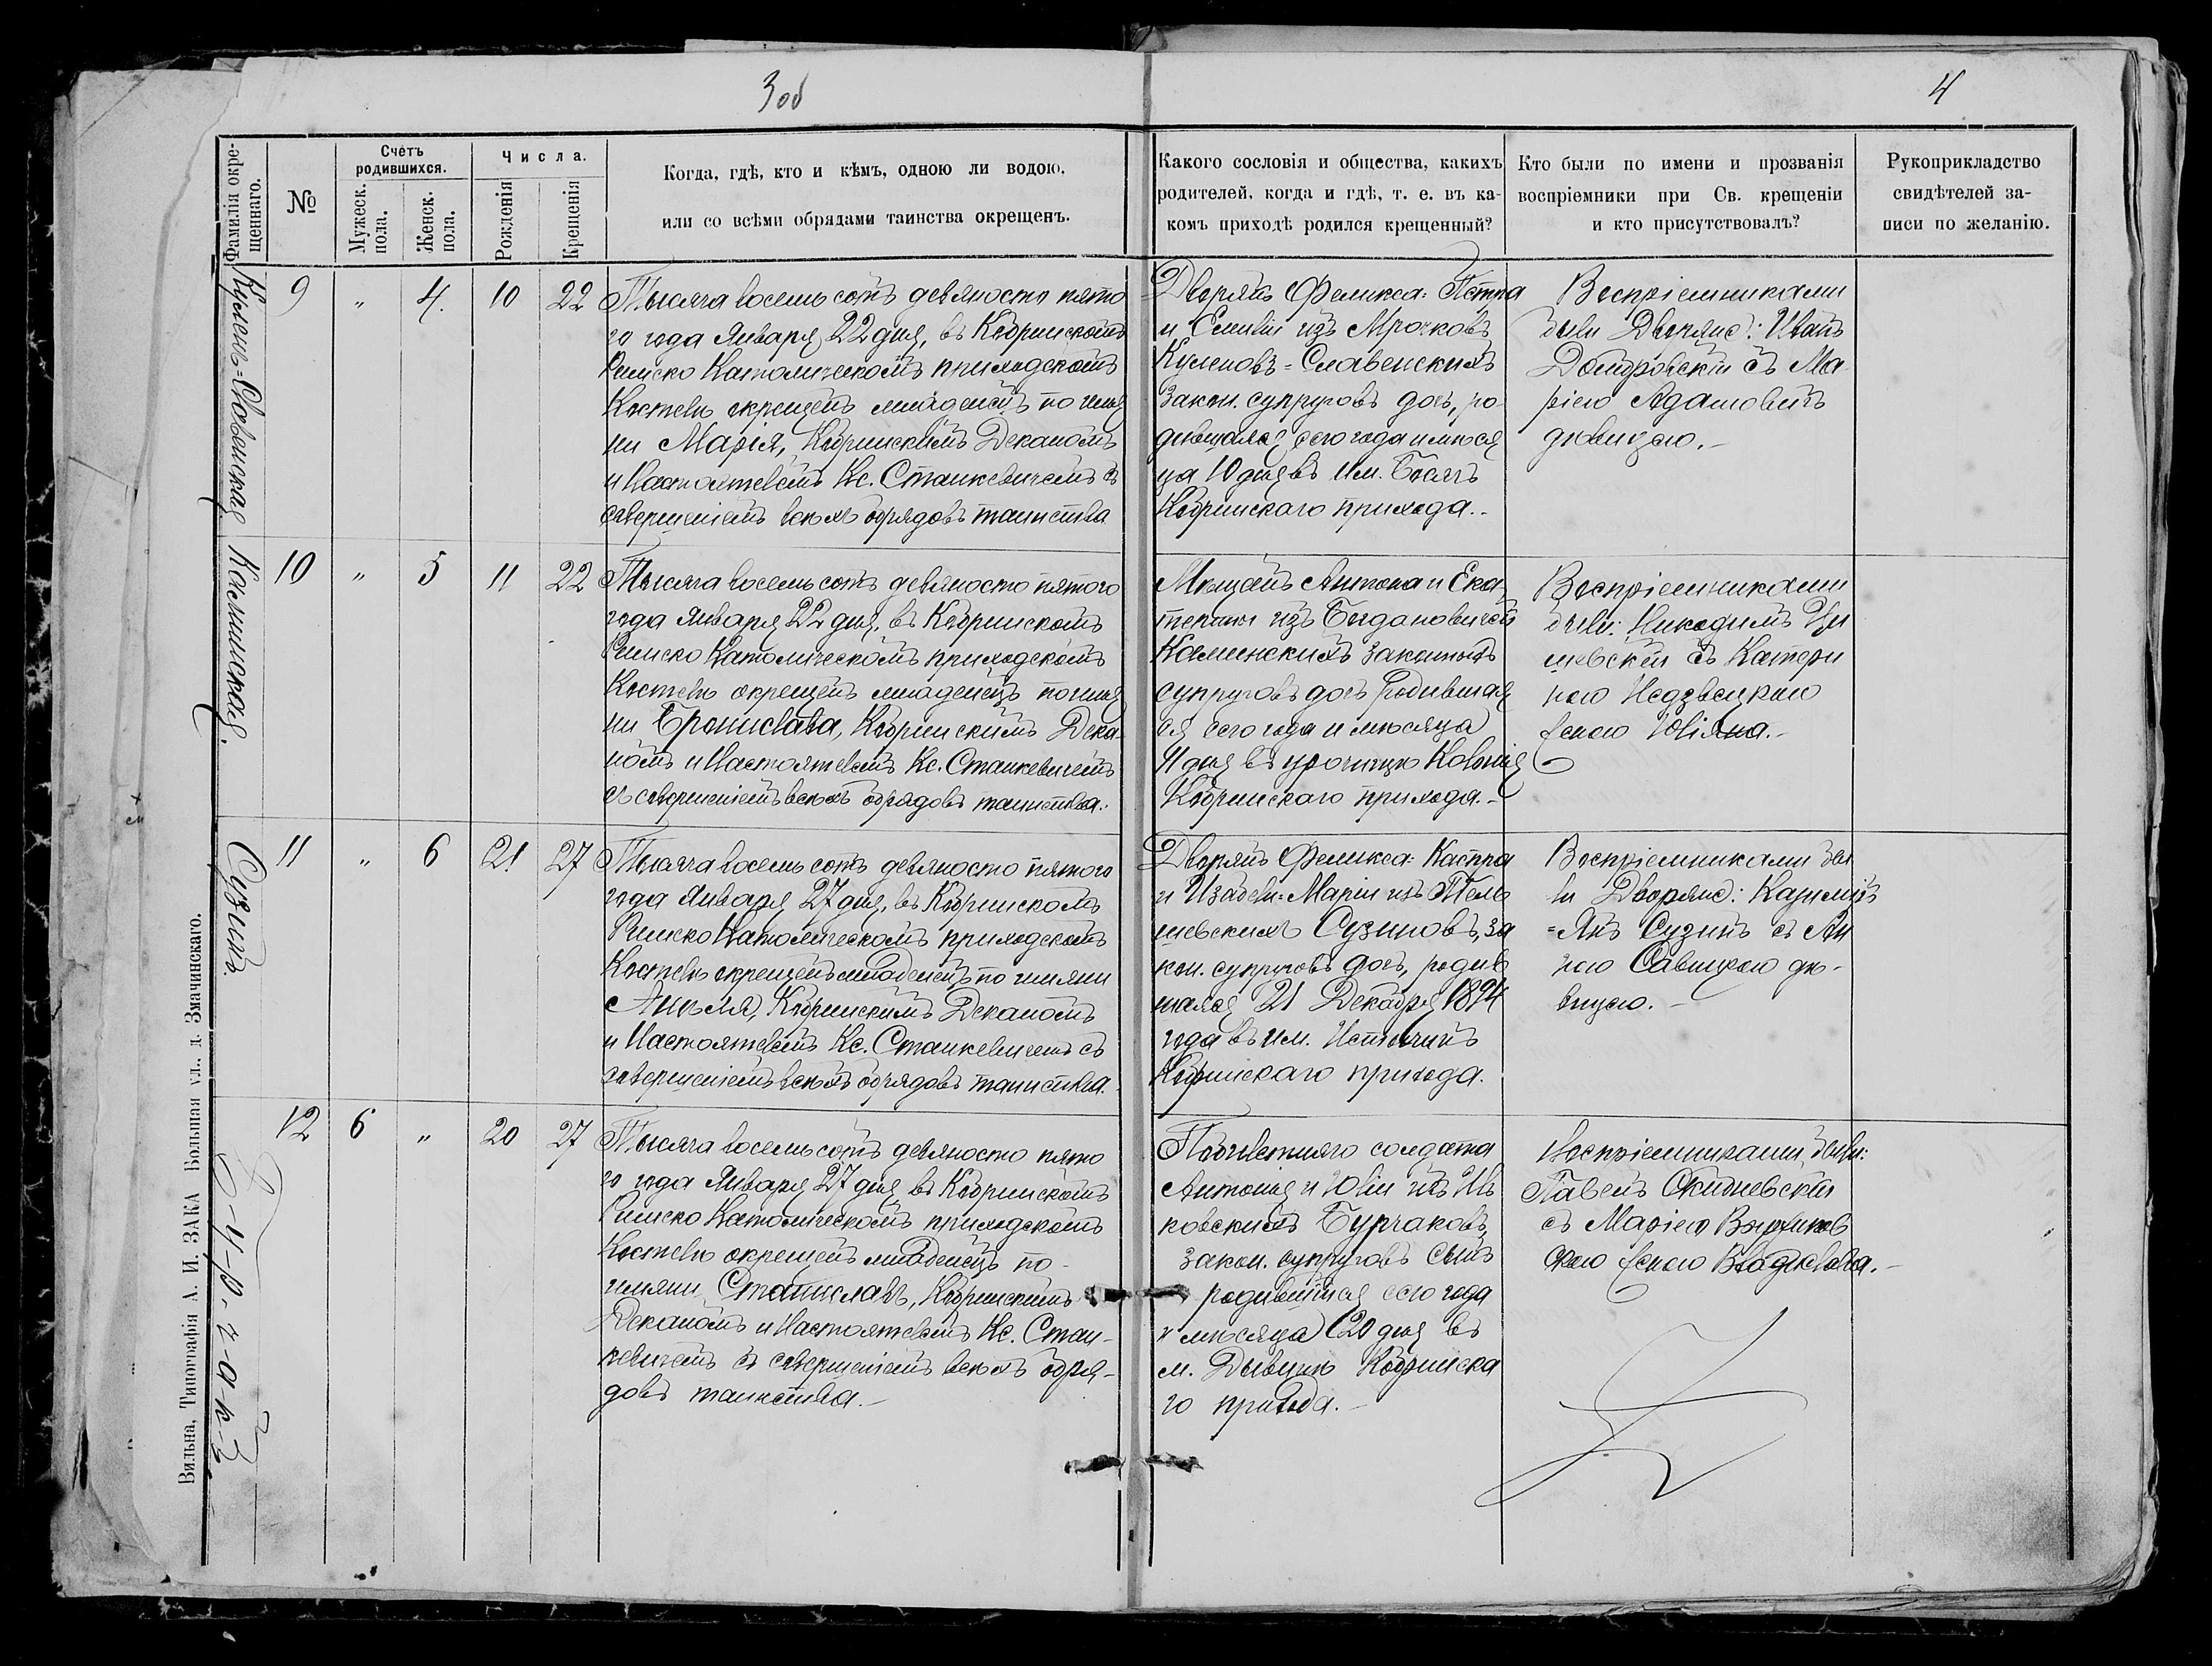 3об
4
Фамилія окре-
щеннаго.
№
Счетъ
родившихся.
Мужеск.
пола.
Женск.
пола.
Числа.
Рожденія
Крещенія
Когда, гдѣ, кто и кѣмъ, одною ли водою,
или со всѣми обрядами таинства окрещенъ.
Какого сословія и общества, какихъ
родителей, когда и гдѣ, т. е. въ ка-
комъ приходѣ родился крещенный?
Кто были по имени и прозванія
воспріемники при Св. крещеніи
и кто присутствовалъ?
Рукоприкладство
свидѣтелей за-
писи по желанію.
9 " 4. 10 22
Тысяча восемьсотъ девяносто пято
го года Января 22 дня, въ Кобринскомъ
Римско Католическомъ приходскомъ
Костелѣ окрещенъ младенецъ по имя
ни Марія, Кобринскимъ Деканомъ
и Настоятелемъ Кс. Станкевичемъ съ
совершеніемъ всѣхъ обрядовъ таинства
Дворянъ Феликса-Петра
и Емиліи изъ Мрочковъ
закон. супруговъ дочь, ро
дившаяся сего года и мѣся
ца 10 дня въ им.
Кобринскаго прихода.-
Воспріемниками
были Дворяне: Иванъ
Домбровскій съ Ма
ріею Адамовичъ
дѣвицею.-
Каминская.
10 " 5 11 22
Тысяча восемьсотъ девяносто пятого
года Января 22 дня, въ Кобринскомъ
Римско Католическомъ приходскомъ
Костелѣ окрещенъ младенецъ по имя
ни Бронислава, Кобринскимъ Дека-
номъ и Настоятелемъ Кс. Станкевичемъ
съ совершеніемъ всѣхъ обрядовъ таинства.
Мѣщанъ Антона и Ека
терины изъ Богдановичей
Каминскихъ законныхъ
супруговъ дочь родившая
ся сего года и мѣсяца
11 дня въ урочищѣ Колонія
Кобринскаго прихода.-
Воспріемниками
были: Никодимъ
съ Катери
ною Недзвецкою
женою Юліяна.-
Сузинъ.
11 " 6 21 27
Тысяча восемьсотъ девяносто пятого
года Января 27 дня, въ Кобринскомъ
Римско Католическомъ приходскомъ
Костелѣ окрещенъ младенецъ по имяни
Анеля, Кобринскимъ Деканомъ
и Настоятелемъ Кс. Станкевичемъ съ
совершеніемъ всѣхъ обрядовъ таинства.
Дворянъ Феликса-
и Изабели-Маріи изъ Тель
шевскихъ Сузиновъ, за
кон. супруговъ дочь, родив
шаяся 21 Декабря 1894
года въ им.
Кобринскаго прихода.
Воспріемниками бы
ли Дворяне: Казиміръ
-Янъ Сузинъ съ Ан
ною Савицкою дѣ-
вицею.-
Б-у-р-ч-а-к-ъ
12 6 " 20 27
Тысяча восемьсотъ девяносто пято
го года Января 27 дня въ Кобринскомъ
Римско Католическомъ приходскомъ
Костелѣ окрещенъ младенецъ по-
имяни Станиславъ, Кобринскимъ
Деканомъ и Настоятелемъ Кс. Стан-
кевичемъ съ совершеніемъ всѣхъ обря-
довъ таинства.-
солдата
Антонія и Юліи изъ
Бурчаковъ,
закон. супруговъ сынъ
родившійся сего года
и мѣсяца 20 дня въ
м. Дывинѣ Кобринска
го прихода.-
Воспріемниками были:
Павелъ
съ Маріею
женою Владислава.-
Вильна, Типографія А. И. ЗАКА Большая ул., д. Змачинскаго.